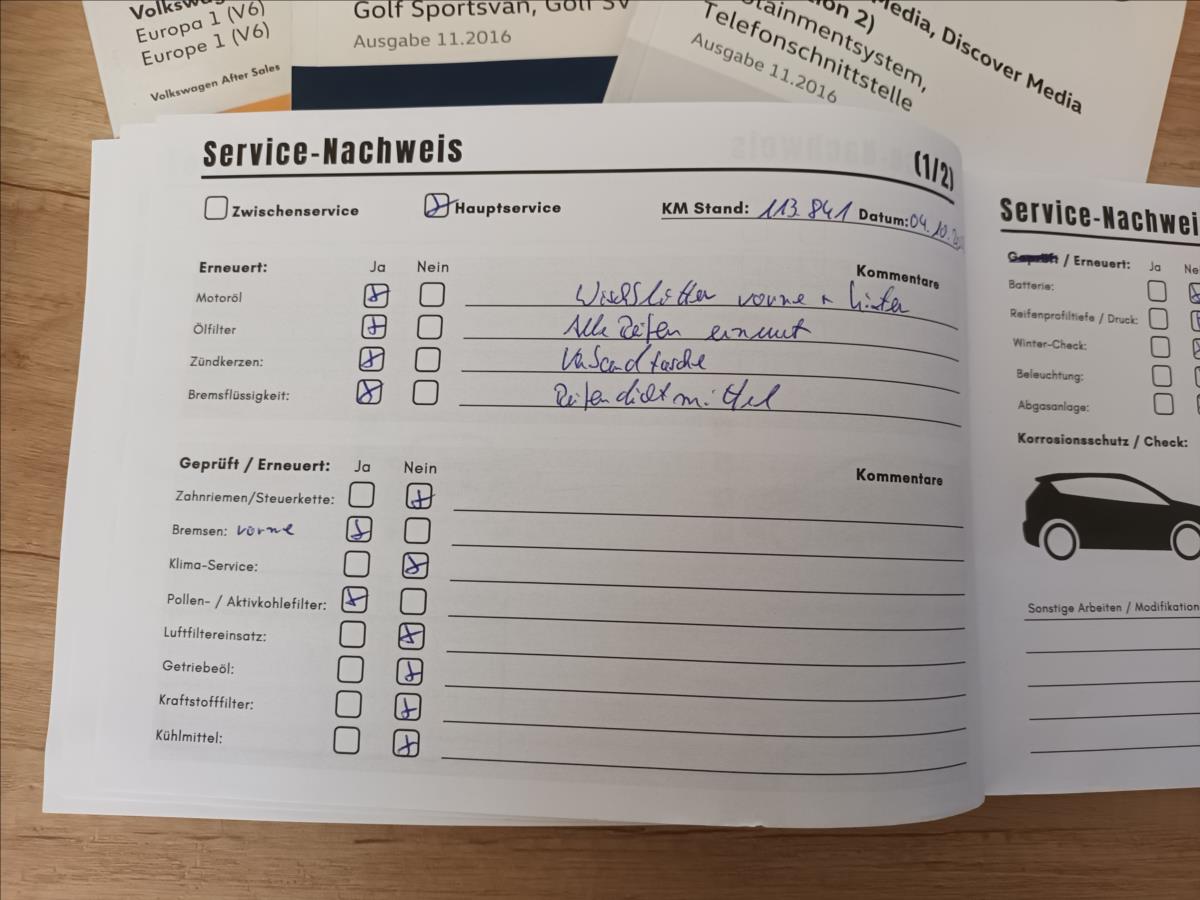 Volkswagen
Europa 1 (V6)
Europe 1 (V6)
Volkswagen After Sales
Golf Sportsvan, Golf SV
Ausgabe 11.2016
Media, Discover Media
2)
tainmentsystem,
Telefonschnittstelle
Ausgabe 11.2016
Service-Nachweis (1/2)
Zwischenservice Hauptservice KM Stand: 113.841 Datum: 04.10.
Erneuert: Ja Nein Kommentare
Motoröl Wischblätter vorne + hinten
Ölfilter Alle Reifen erneuert
Zündkerzen: Verbandtasche
Bremsflüssigkeit: Reifendichtmittel
Geprüft / Erneuert: Ja Nein Kommentare
Zahnriemen/Steuerkette:
Bremsen: vorne
Klima-Service:
Pollen- / Aktivkohlefilter:
Luftfiltereinsatz:
Getriebeöl:
Kraftstofffilter:
Kühlmittel:
Service-Nachwei
Geprüft / Erneuert: Ja Ne
Batterie:
Reifenprofiltiefe / Druck:
Winter-Check:
Beleuchtung:
Abgasanlage:
Korrosionsschutz / Check:
Sonstige Arbeiten / Modifikation